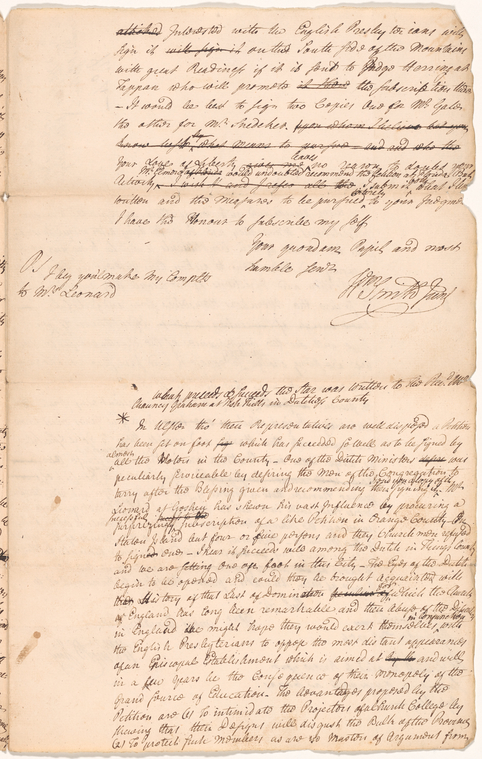 Interested with the English Presbyterians will
sign it on the South side of the Mountains
with great Readiness if it is sent to Judge Herring at
Tappan who will promote the Subscriptions there
- It would be best to sign two Copies One for Mr Gale
the other for Mr. Snedeker.
Your Love of Liberty leaves me no reason to doubt your
Activity I submit what I've
written and the Measures to be pursued to your Judgmt
I have the Honour to subscribe my self
Your quondam Pupil and most
humble Servt
Wm Smith Junr
PS I beg you'll make my Complts
to Mrs Leonard
what precedes & succeeds the Star was written to the Revd Mr
Chauncy Graham at Fish Kills in Dutchess County
* In Ulster the three Representatives are well disposed a Petition
has been set on foot which has succeeded so well as to be signed by
almost all the Voters in the County - One of the Dutch Ministers was
peculiarly serviceable by desiring the Men of the Congregation to
tarry after the Blessing given and recommending the signing Mr
Leonard of Goshen has shewn his vast Influence by procuring a
surprizing Subscription of a like Petition in Orange County On
Staten Island but four or five persons and they Church men refused
to sign ours - I hear it succeeds well among the Dutch in Kings County
and we are setting one on foot in this City - The Eyes of the Dutch
begin to be opened and could they be brought acquainted with
the History of that Lust of Domination for which the Church
of England has long been remarkable and their abuse of the Dissenters
in England we might hope they would exert themselves in conjunction with
the English Presbyterians to oppose the most distant appearances
of an Episcopal Establishment which is aimed at and will
in a few Years be the Consequence of their Monopoly of the
Grand Source of Education - The advantages proposed by the
Petition are As to intimidate the Projectors of a Church College by
shewing that their Designs will disgust the Bulk of the Province
As to protect such Members as are no Masters of Argument from